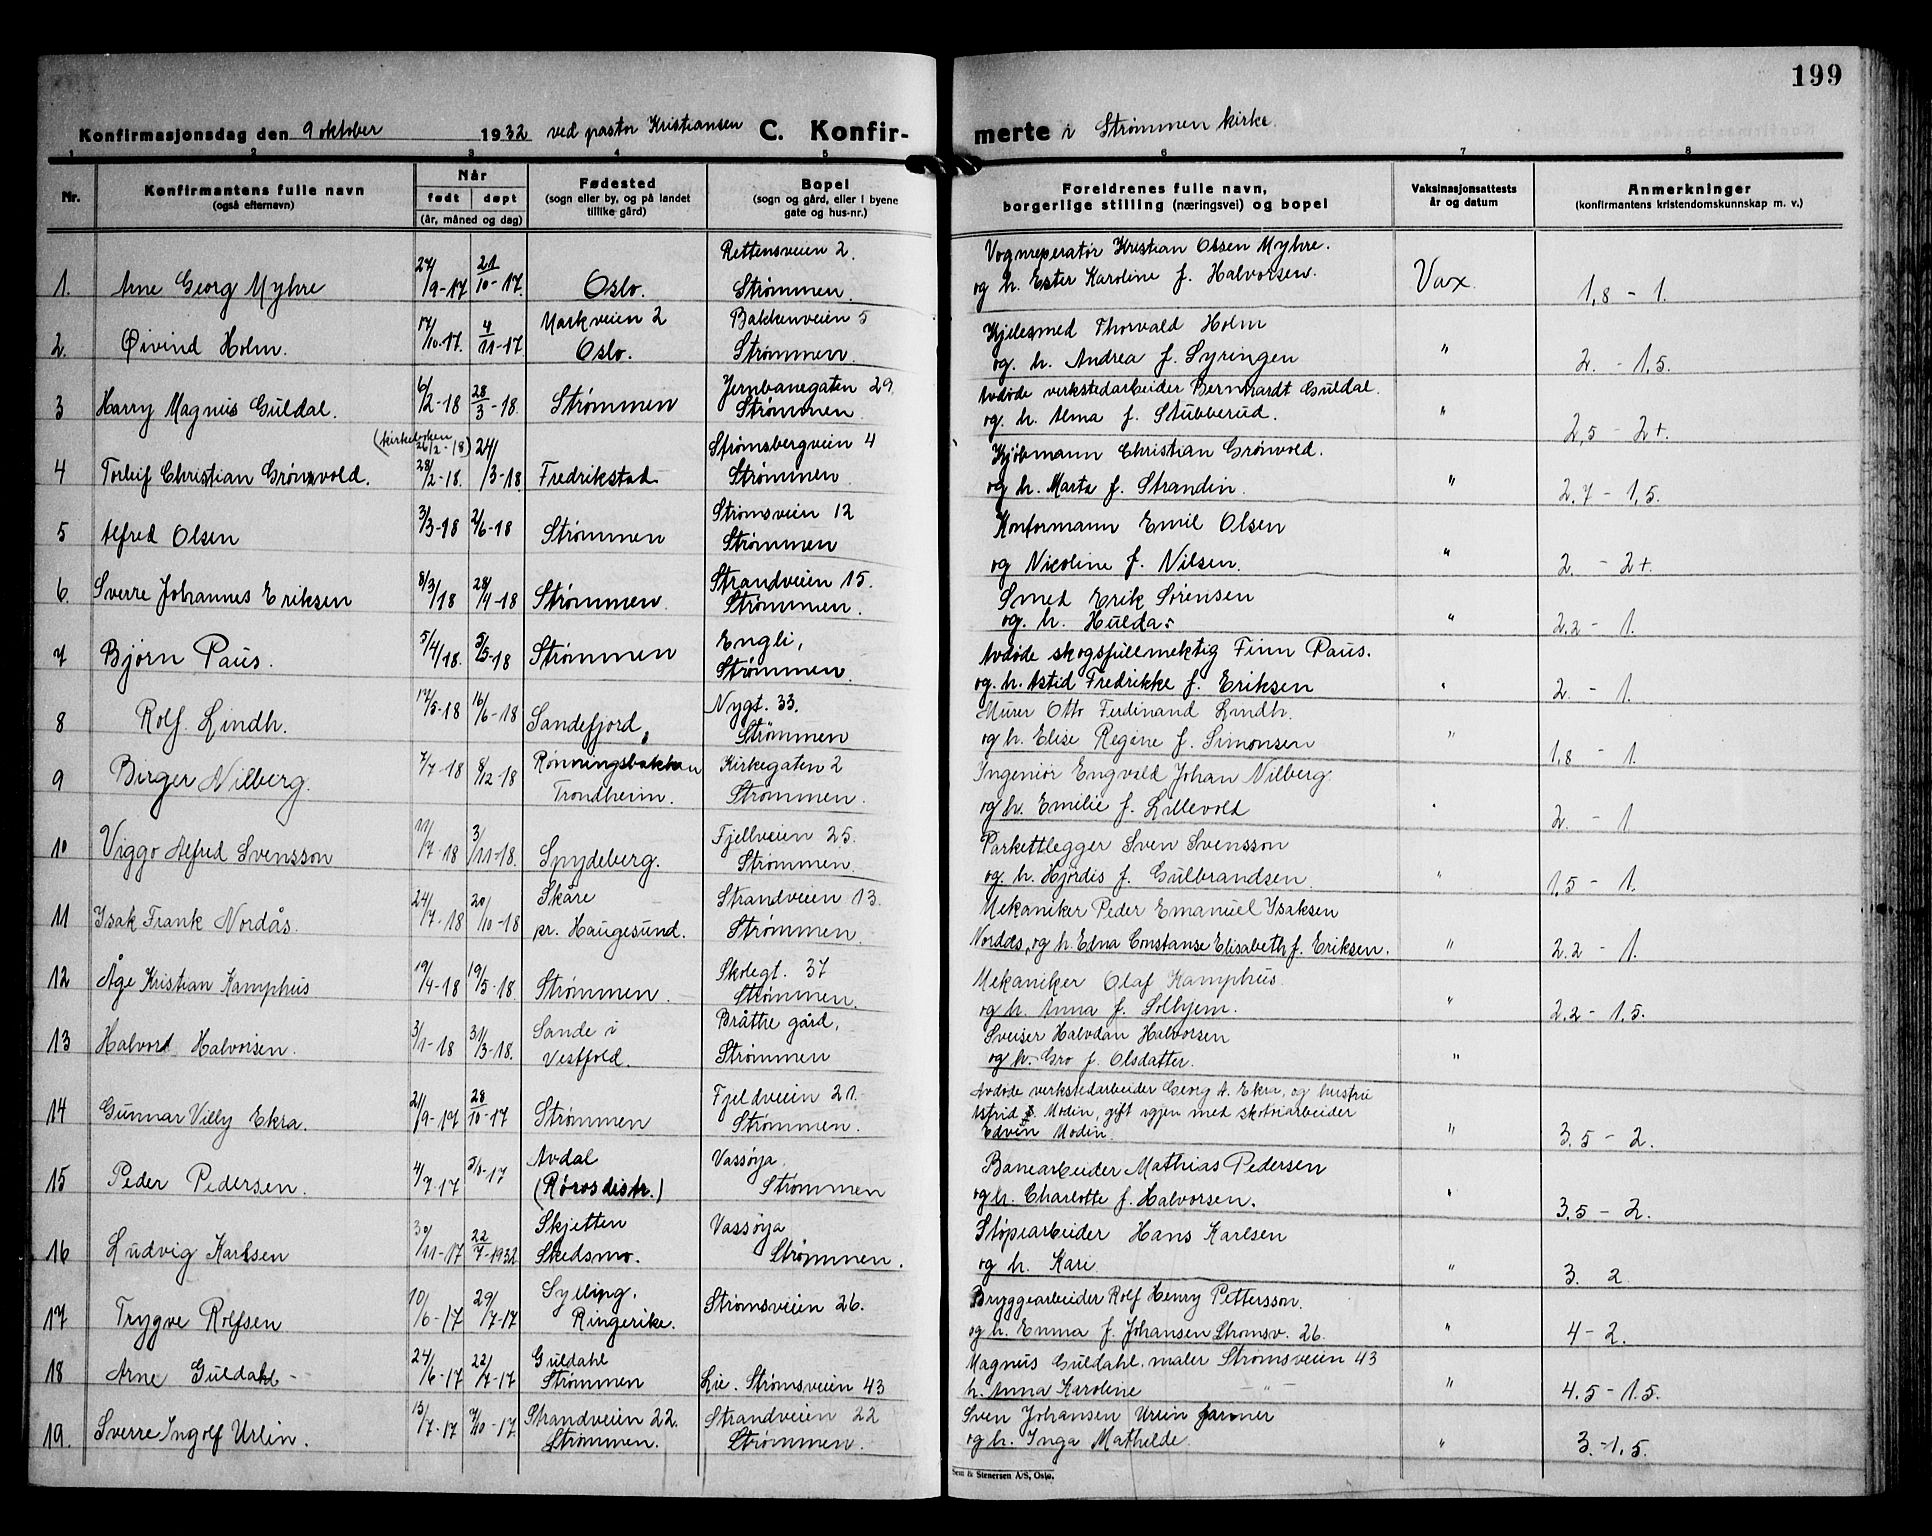 199
Konfirmasjonsdag den 9 oktober 1932 ved pastor Kristiansen C. Konfir-
merte i Strømmen kirke.
1 2 3 4 5 6 7 8
Nr. Konfirmantens fulle navn (også efternavn)
Når født døpt (år, måned og dag)
Fødested (sogn eller by, og på landet tillike gård)
Bopel (sogn og gård, eller i byene gate og hus-nr.)
Foreldrenes fulle navn, borgerlige stilling (næringsvei) og bopel
Vaksinasjonsattests år og datum
Anmerkninger (konfirmantens kristendomskunnskap m. v.)
27 21 Rettensveien 2. Vognreperatør Kristian Olsen Myhre.
1. Arne Georg Myhre /9-17 10-17. Oslo. Strømmen. og h. Ester Karoline f. Halvorsen. Vax. 1,8 - 1.
17 4 Markveien 2 Bakkenveien 5 Kjelesmed Thorvald Holm
2. Øivind Holm. /10-17. 11-17 Oslo. Strømmen. og. h. Andrea f. Syringen " 2. - 1,5.
6 28 Jernbanegaten 29. Avdøde verkstedarbeider Bernhardt Guldal.
3 Harry Magnus Guldal. /2-18 3-18. Strømmen Strømmen. og. h. Alma f. Stubberud. " 2,5 - 2+.
(kirkeboken 26/2-18) 24/ Strømsbergveien 4 Kjøbmann Christian Grønvold.
4 Torleif Christian Grønvold. 28/2-18. /3-18. Fredrikstad Strømmen. og h. Marta f. Strandin. " 2,7 - 1,5.
Strømsveien 12 Konformann Emil Olsen
5 Alfred Olsen 3/3-18 2/6-18 Strømmen Strømmen og Nicoline f. Nilsen. " 2. - 2+.
Strandveien 15. Smed Erik Sørensen
6. Sverre Johannes Eriksen 8/3/18 28/4-18 Strømmen. Strømmen. og. h. Hulda " 2.2 - 1.
Engli, Avdøde skogsfullmektig Finn Paus.
7 Bjørn Paus. 5/4/18. 5/5-18 Strømmen Strømmen. og. h. Astid Fredrikke f. Eriksen " 2. - 1.
Nygt. 33. Murer Otto Ferdinand Lindh.
8 Rolf. Lindh. 17/5-18 16/6-18 Sandefjord Strømmen og h. Elise Regine f. Simonsen " 1,8 - 1.
Rønningsbakken Kirkegaten 2 Ingeniør Engvald Johan Nilberg
9 Birger Nilberg. 7/7-18 8/12-18 Trondheim. Strømmen. og h. Emilie f. Lillevold " 2. - 1
Fjellveien 25. Parkettlegger Sven Svensson
10 Viggo Alfred Svensson 11/7-18 3/11-18. Spydeberg. Strømmen. og. h. Hjørdis f. Gulbrandsen. " 1,5 - 1.
Skåre Strandveien 13. Mekaniker Peder Emanuel Isaksen
11 Isak Frank Nordås. 24/7-18 20/10-18 pr. Haugesund. Strømmen. Nordås, og h. Edna Constanse Elisabeth f. Eriksen. " 2.2 - 1.
Skolegt. 37 Mekaniker Olaf Kamphus
12 Åge Kristian Kamphus 19/4-18 19/5-18 Strømmen. Strømmen. og h. Anna f. Solhjem. " 2.2 - 1.5.
Sande i Bråthe gård, Sveiser Halvdan Halvorsen
13 Halvord Halvorsen. 3/1-18 31/3-18. Vestfold. Strømmen og h. Gro f. Olsdatter. "
Fjeldveien 21. Avdøde verkstedarbeider Georg A. Ekra, og hustru
14 Gunnar Villy Ekra. 21/9-17 28/10-17 Strømmen Strømmen. Astrid Modin, gift igjen med skotøiarbeider
Edvin Modin. " 3.5 - 2.
Avdal Vassøya Banearbeider Mathias Pedersen
15 Peder Pedersen. 4/-17 -17 (Rørosdistr.) Strømmen og h. Charlotte f. Halvorsen. " 3,5 - 2.
Skjetten Vassøya Støpearbeider Hans Karlsen
16 Ludvig Karlsen 30/11-17 22/7-1932 Skedsmo. Strømmen. og h. Kari. " 3. 2.
Sylling, Strømsveien 26. Bryggearbeider Rolf Henry Pettersson.
17 Trygve Rolfsen 10/6-17 29/7-17 Ringerike. og h. Emma f. Johansen Strømsv. 26. " 4-2.
Guldahl Magnus Guldahl, maler Strømsveien 43
18 Arne Guldahl - 24/6-17 22/7-17 Strømmen Lie. Strømsveien 43 h. Anna Karoline — " — " 4.5 - 1.5.
Strandveien 22. Strandveien 22 Sven Johansen Urlin farmer
19. Sverre Ingolf Urlin. 15/7-17 7/10-17 Strømmen. Strømmen. og h. Inga Mathilde. " 3.-1,5.
Sem & Stenersen A/S, Oslo.